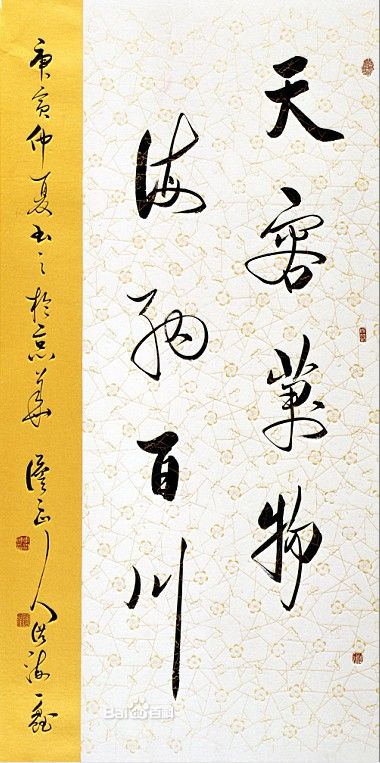 天容萬物
海納百川
庚寅仲夏书之於京華 人洪海
Baidu百科